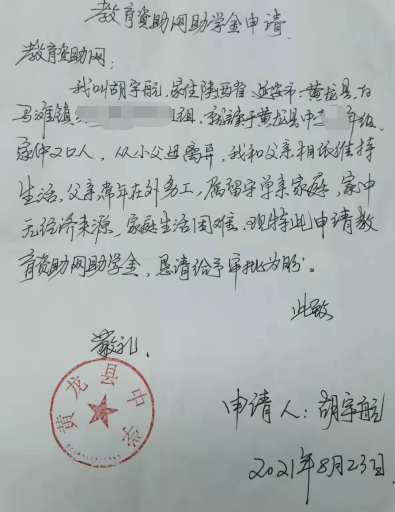 教育资助网助学金申请
教育资助网：
我叫胡宇航，家住陕西省延安市黄龙县白
马滩镇 组，就读于黄龙县中 年级，
家中2口人，从小父母离异，我和父亲相依维持
生活，父亲常年在外务工，属留守单亲家庭，家中
无经济来源，家庭生活困难，现特此申请教
育资助网助学金，恳请给予审批为盼。
此致
敬礼，
黄龙县中学
申请人：胡宇航
2021年8月23日